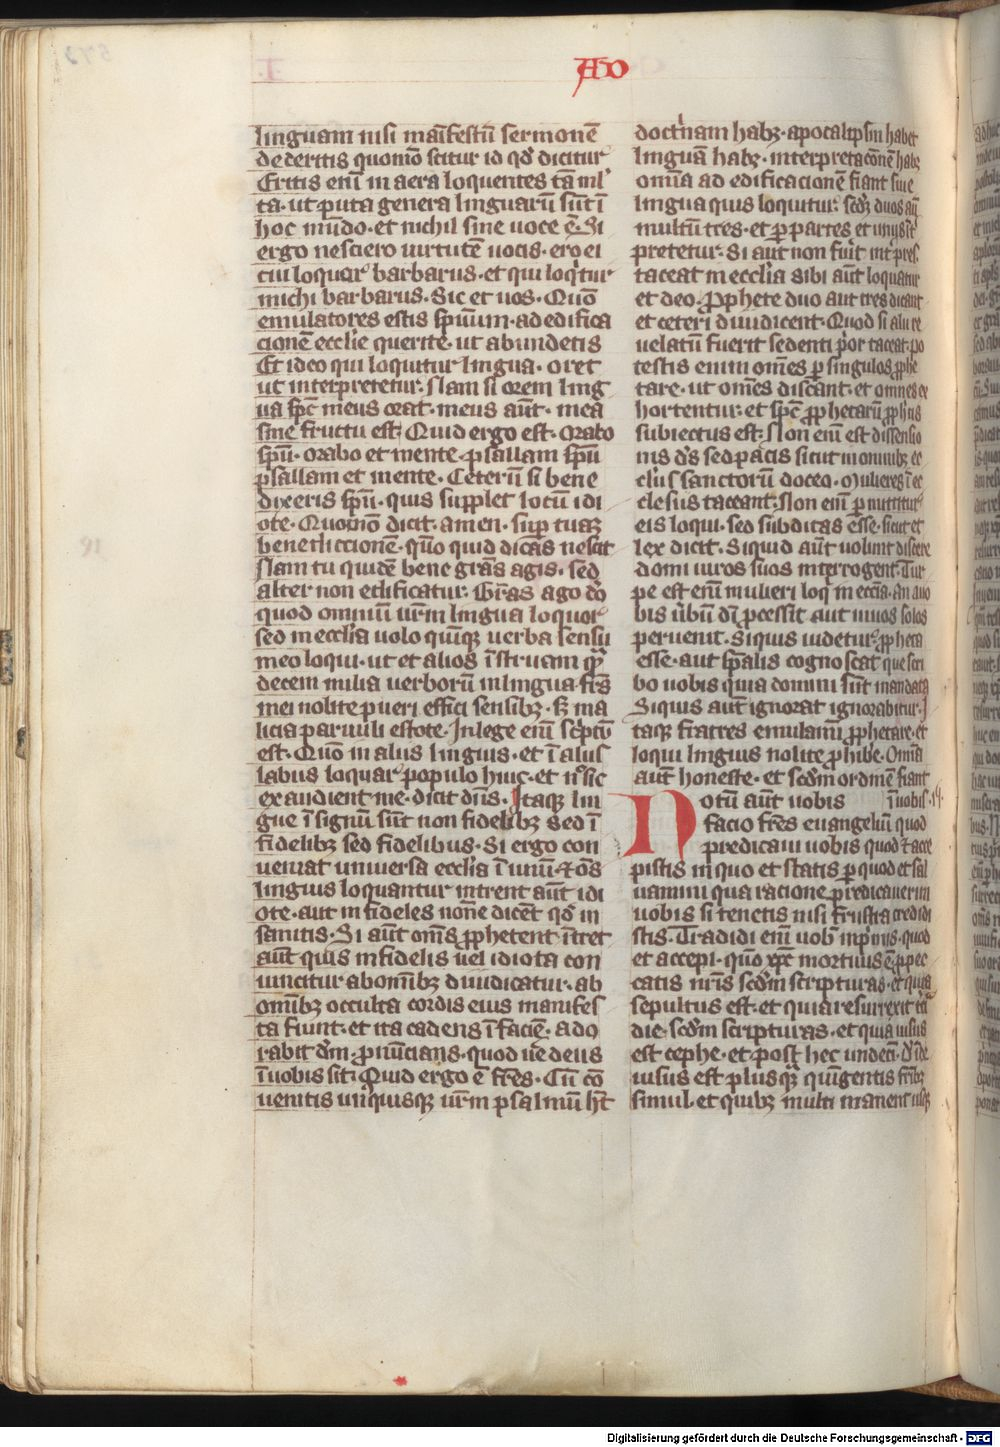 AD
linguam nisi maīfestū sermonē
dederitis quomō scitur id qd' dicitur
Eritis eni in aera loquentes tā ml'
ta· ut puta genera linguarū sūt ī
hoc mūdo· et nichil sine uoce ē· Si
ergo nesciero uirtutē uocis· ero ei
cui loquor barbarus· et qui loqitur
michi barbarus· Sic et uos· Quō
emulatores estis spūum· ad edifica
cionē ecclīe querite· ut abundetis
Et ideo qui loquitur lingua· oret
ut interpretetur· Nam si orem ling
ua spc meus orat· meus aūt· mea
sine fructu est· Quid ergo est· Orabo
spū· orabo et mente· psallam spū
psallam et mente· Ceterū si bene
dixeris spū· quis supplet locū idi
ote· Quomō dicit· amen· sup tuaʒ
benediccionē· qūo quid dicas nescit
Nam tu quidē bene grās agis· sed
alter non edificatur· Grās ago dō
quod omniū urm lingua loquor
sed in ecclīa uolo qūinqʒ uerba sensu
meo loqui· ut et alios īstruam qʒ
decem milia uerborū in lingua· frs
mei nolite pueri effici sensibʒ· sʒ ma
licia paruuli estote· In lege eni scptū
est· Quō in aliis linguis· et ī aliis
labiis loquar populo huic· et nc sic
exaudient me· dicit dns· Itaqʒ lin
gue ī signū sūt non fidelibʒ sed ī
fidelibʒ sed fidelibus· Si ergo con
ueniat uniuersa ecclīa ī unū· et oēs
linguis loquantur intrent aūt idi
ote· aut infideles nōne dicēt qd' in
sanitis· Si aūt omēs prophetent· ītret
aūt quis infidelis uel idiota con
uincitur ab omībʒ diiudicatur· ab
omībʒ occulta cordis eius manifes
ta fiunt· et ita cadens ī faciē· ado
rabit dm· pronūcians· quod ue deus
ī uobis sit· Quid ergo ē frēs· Cū cō
uenitis unusquisqʒ urm psalmū hēt
doctīnam habʒ· apocalipsim habet
linguā habʒ· interpretacōnē habʒ
omīa ad edificacionē fiant siue
lingua quis loquitur· scdm duos aūt
multū tres· et per partes et unus īt
pretetur· Si aut non fuīt interpres
taceat in ecclīa sibi aūt loquatur
et deo· Prophete duo aut tres dicant
et ceteri diiudicent· Quod si alii re
uelatū fuerit sedenti prior taceat· po
testis enim omēs per singulos prophe
tare· ut omēs discant· et omnes ex
hortentur· et spc prophetarū prophis
subiectus est· Non eni est dissensio
nis ds sed pacis sicut in omnibʒ ec
cliis sanctorū doceo· Mulieres ī ec
clesiis taceant· Non eni permittitur
eis loqui· sed subditas esse· sicut et
lex dicit· Si quid aūt uolunt discere
domi uiros suos interrogent· Tur
pe est eni mulieri loqi in ecclīa· an a uo
bis ūbum di pcessit aut in uos solos
peruenit· Si quis uidetur propheta
esse· aut spalis cognoscat que scri
bo uobis quia domini sūt mandata
Si quis aūt ignorat ignorabitur· I
taqʒ fratres emulamī prophetare· et
loqui linguis nolite prohibe· Omīa
aūt honeste· et scdm ordinē fiant
Notū aūt uobis ī uobis· 14·
facio frēs euangeliū quod
predicaui uobis quod et acce
pistis in quo et statis per quod et sal
uamini qua racione predicauerim
uobis si tenetis nisi frustra credidi
stis· Tradidi eni uob' inprimis· quod
et accepi· qūo xpc mortuus ē pro pec
catis nris scdm scripturas· et quia
sepultus est· et quia resurrexit tā
die· scdm scripturas· et quia uisus
est cephe· et post hec undeci· Deīde
uisus est plusqʒ qūngentis frībʒ
simul· et quibʒ multi manent usqʒ
Digitalisierung gefördert durch die Deutsche Forschungsgemeinschaft - DFG